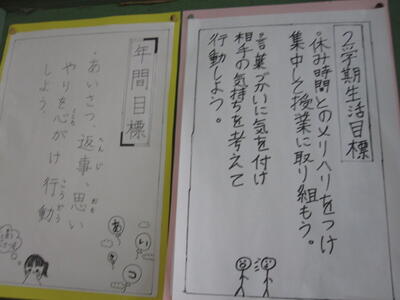 年間目標
・あいさつ、返事、思い
やりを心がけ行動
しよう。
へんじ
おも
こころ
こうどう
あ
い
さ
つ
2学期生活目標
・休み時間とのメリハリをつけ
集中して授業に取り組もう。
・言葉づかいに気を付け
相手の気持ちを考えて
行動しよう。